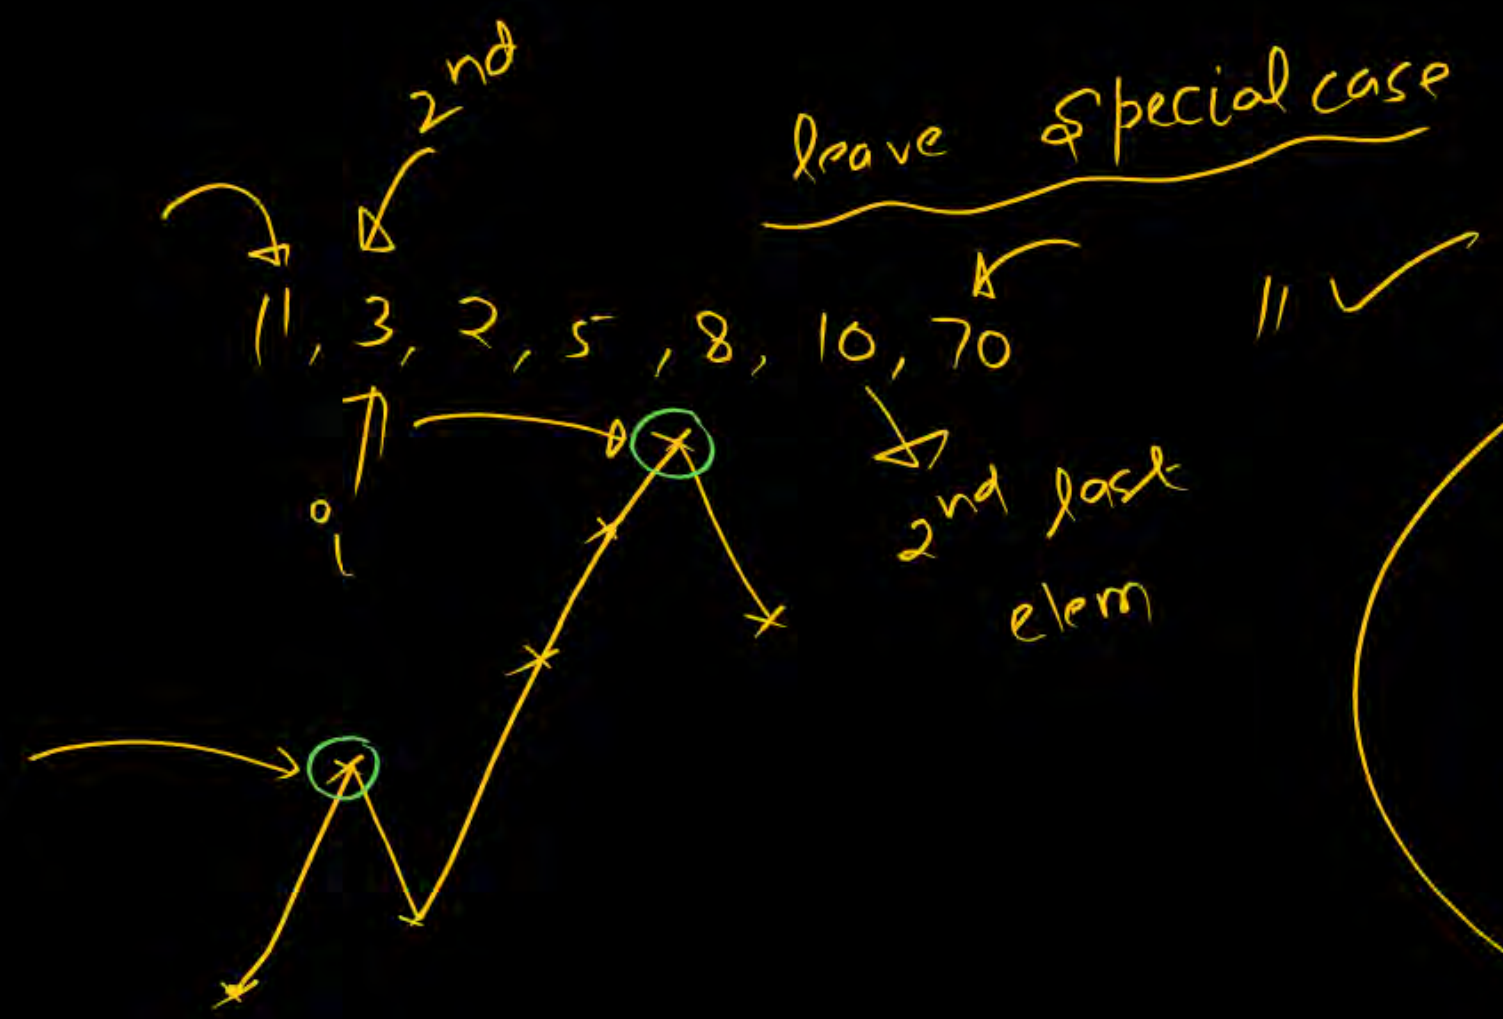 2nd
leave special case
11, 3, 2, 5, 8, 10, 70
11
i
2nd last
elem